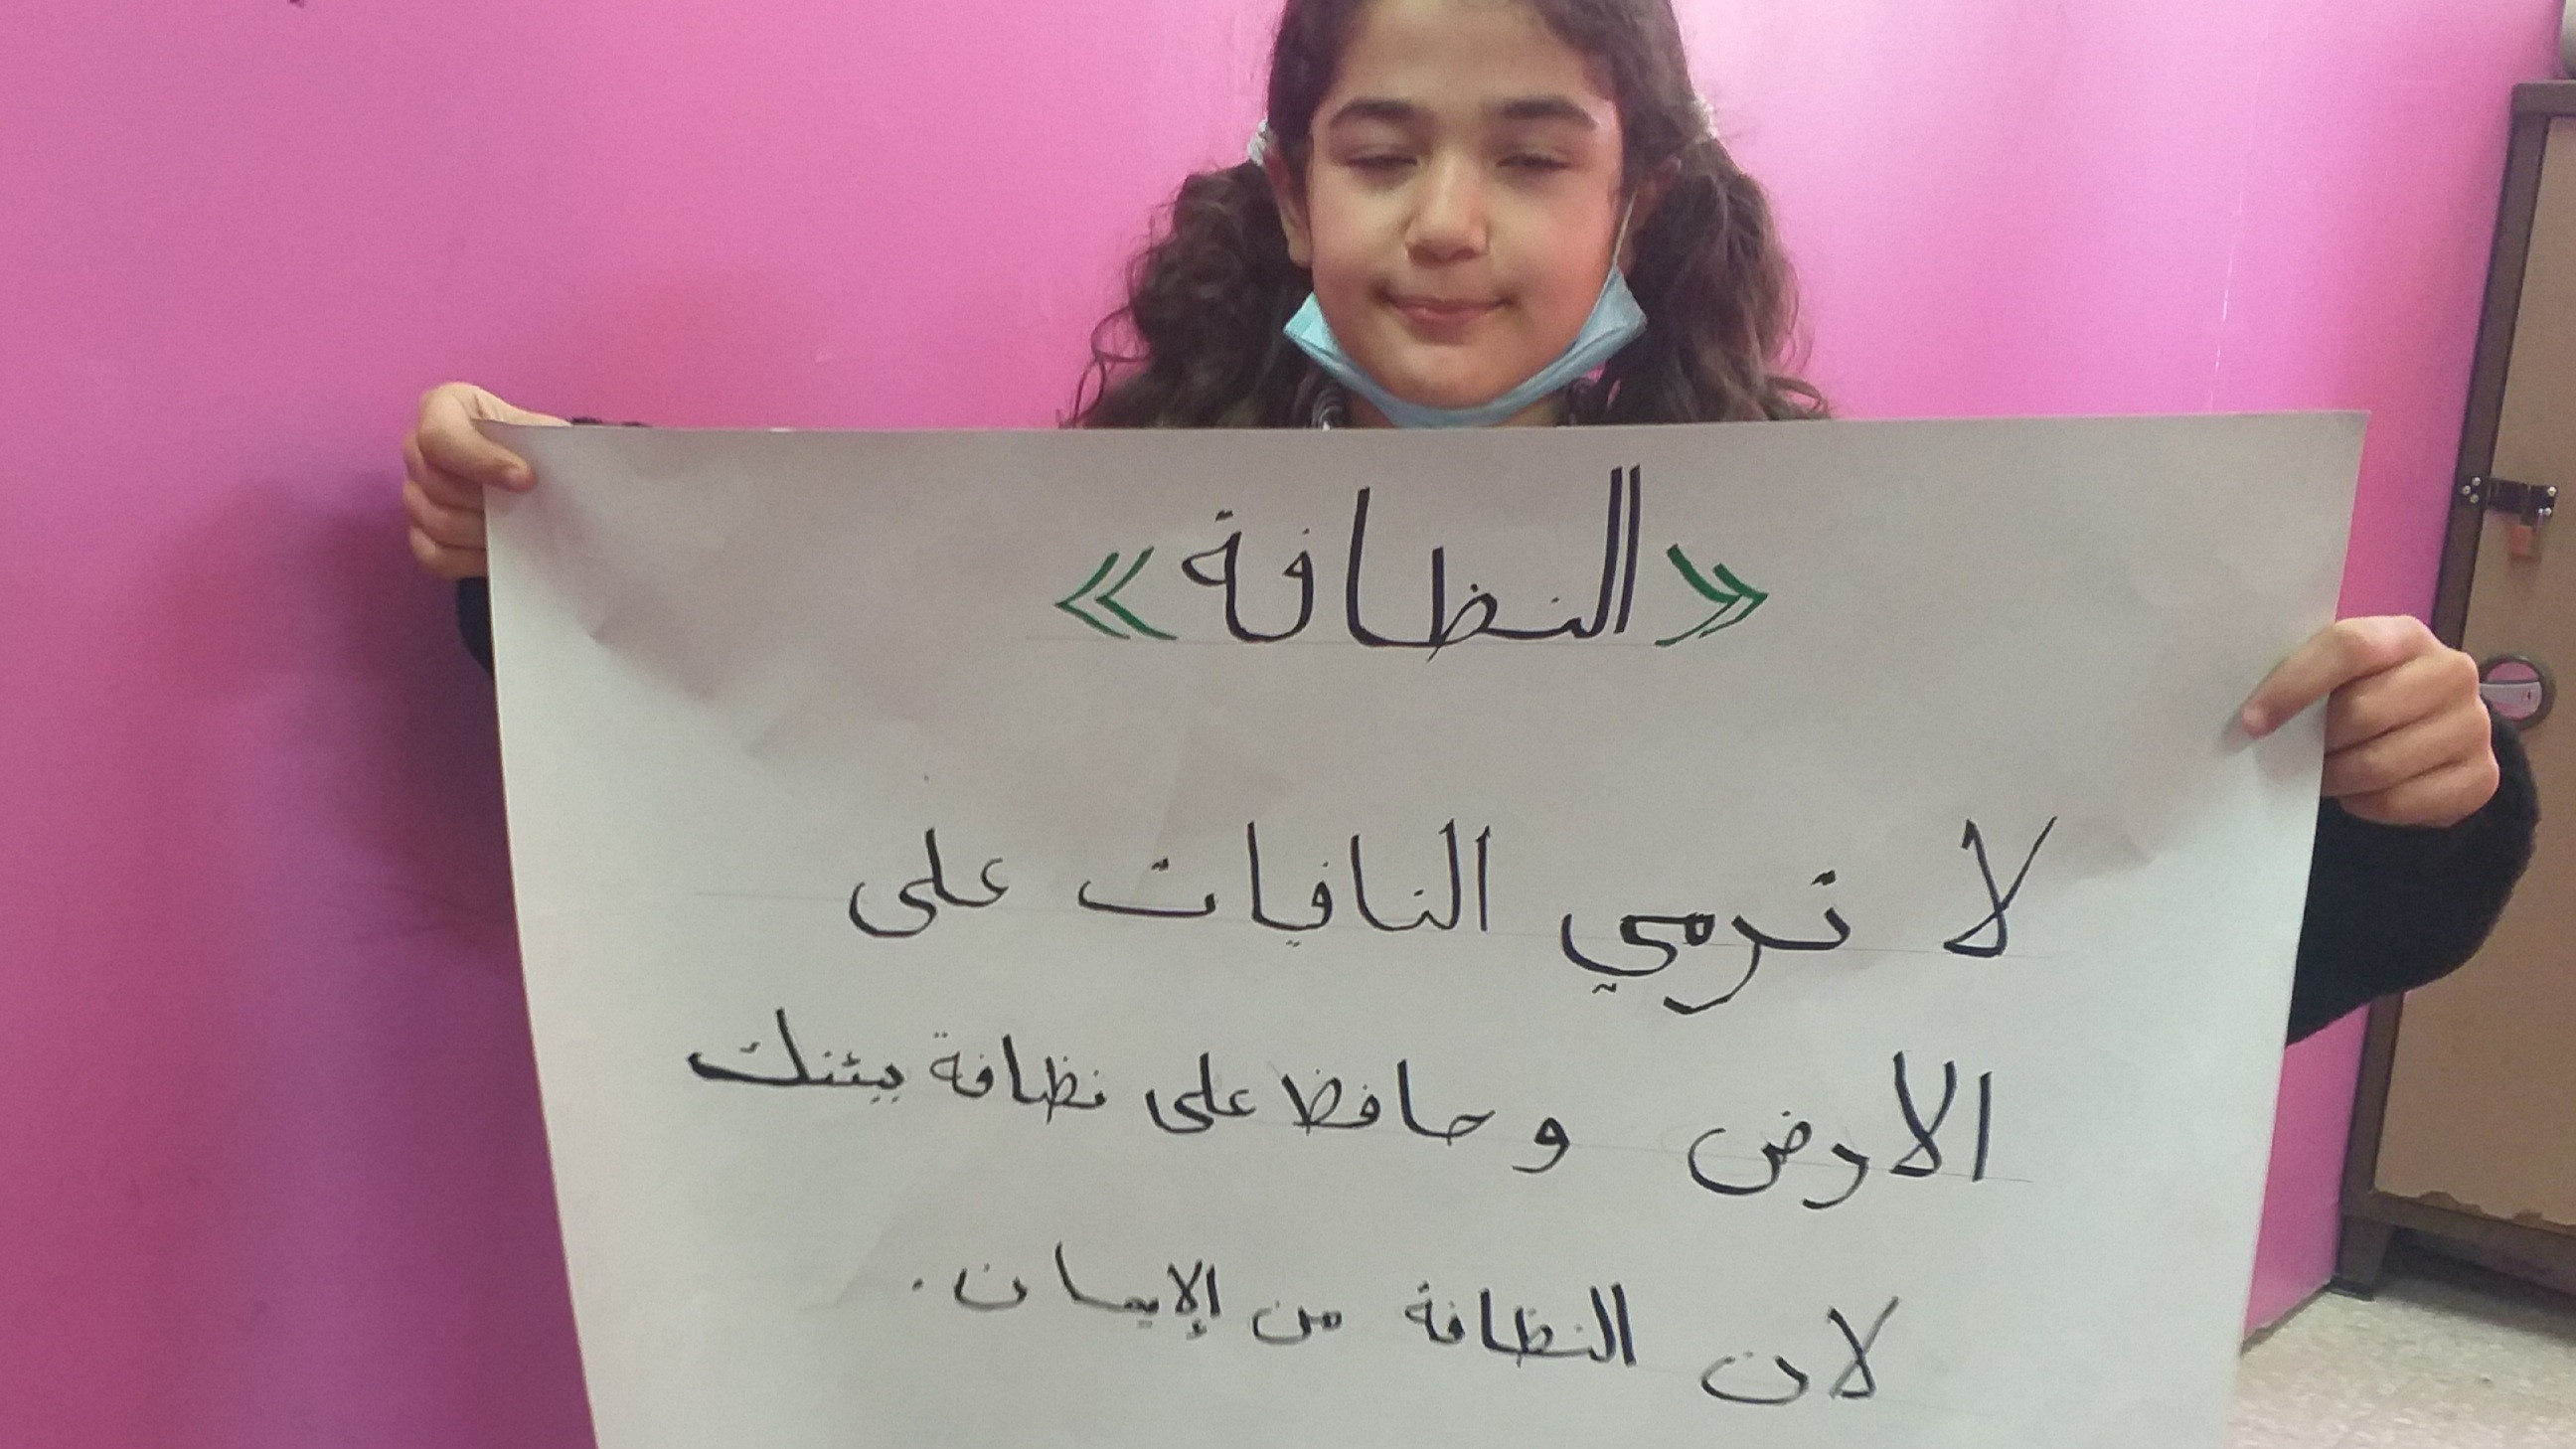 «النظافة»
لا ترمي النافيات على
الارض وحافظ على نظافة بيئتك
لان النظافة من الإيمان.